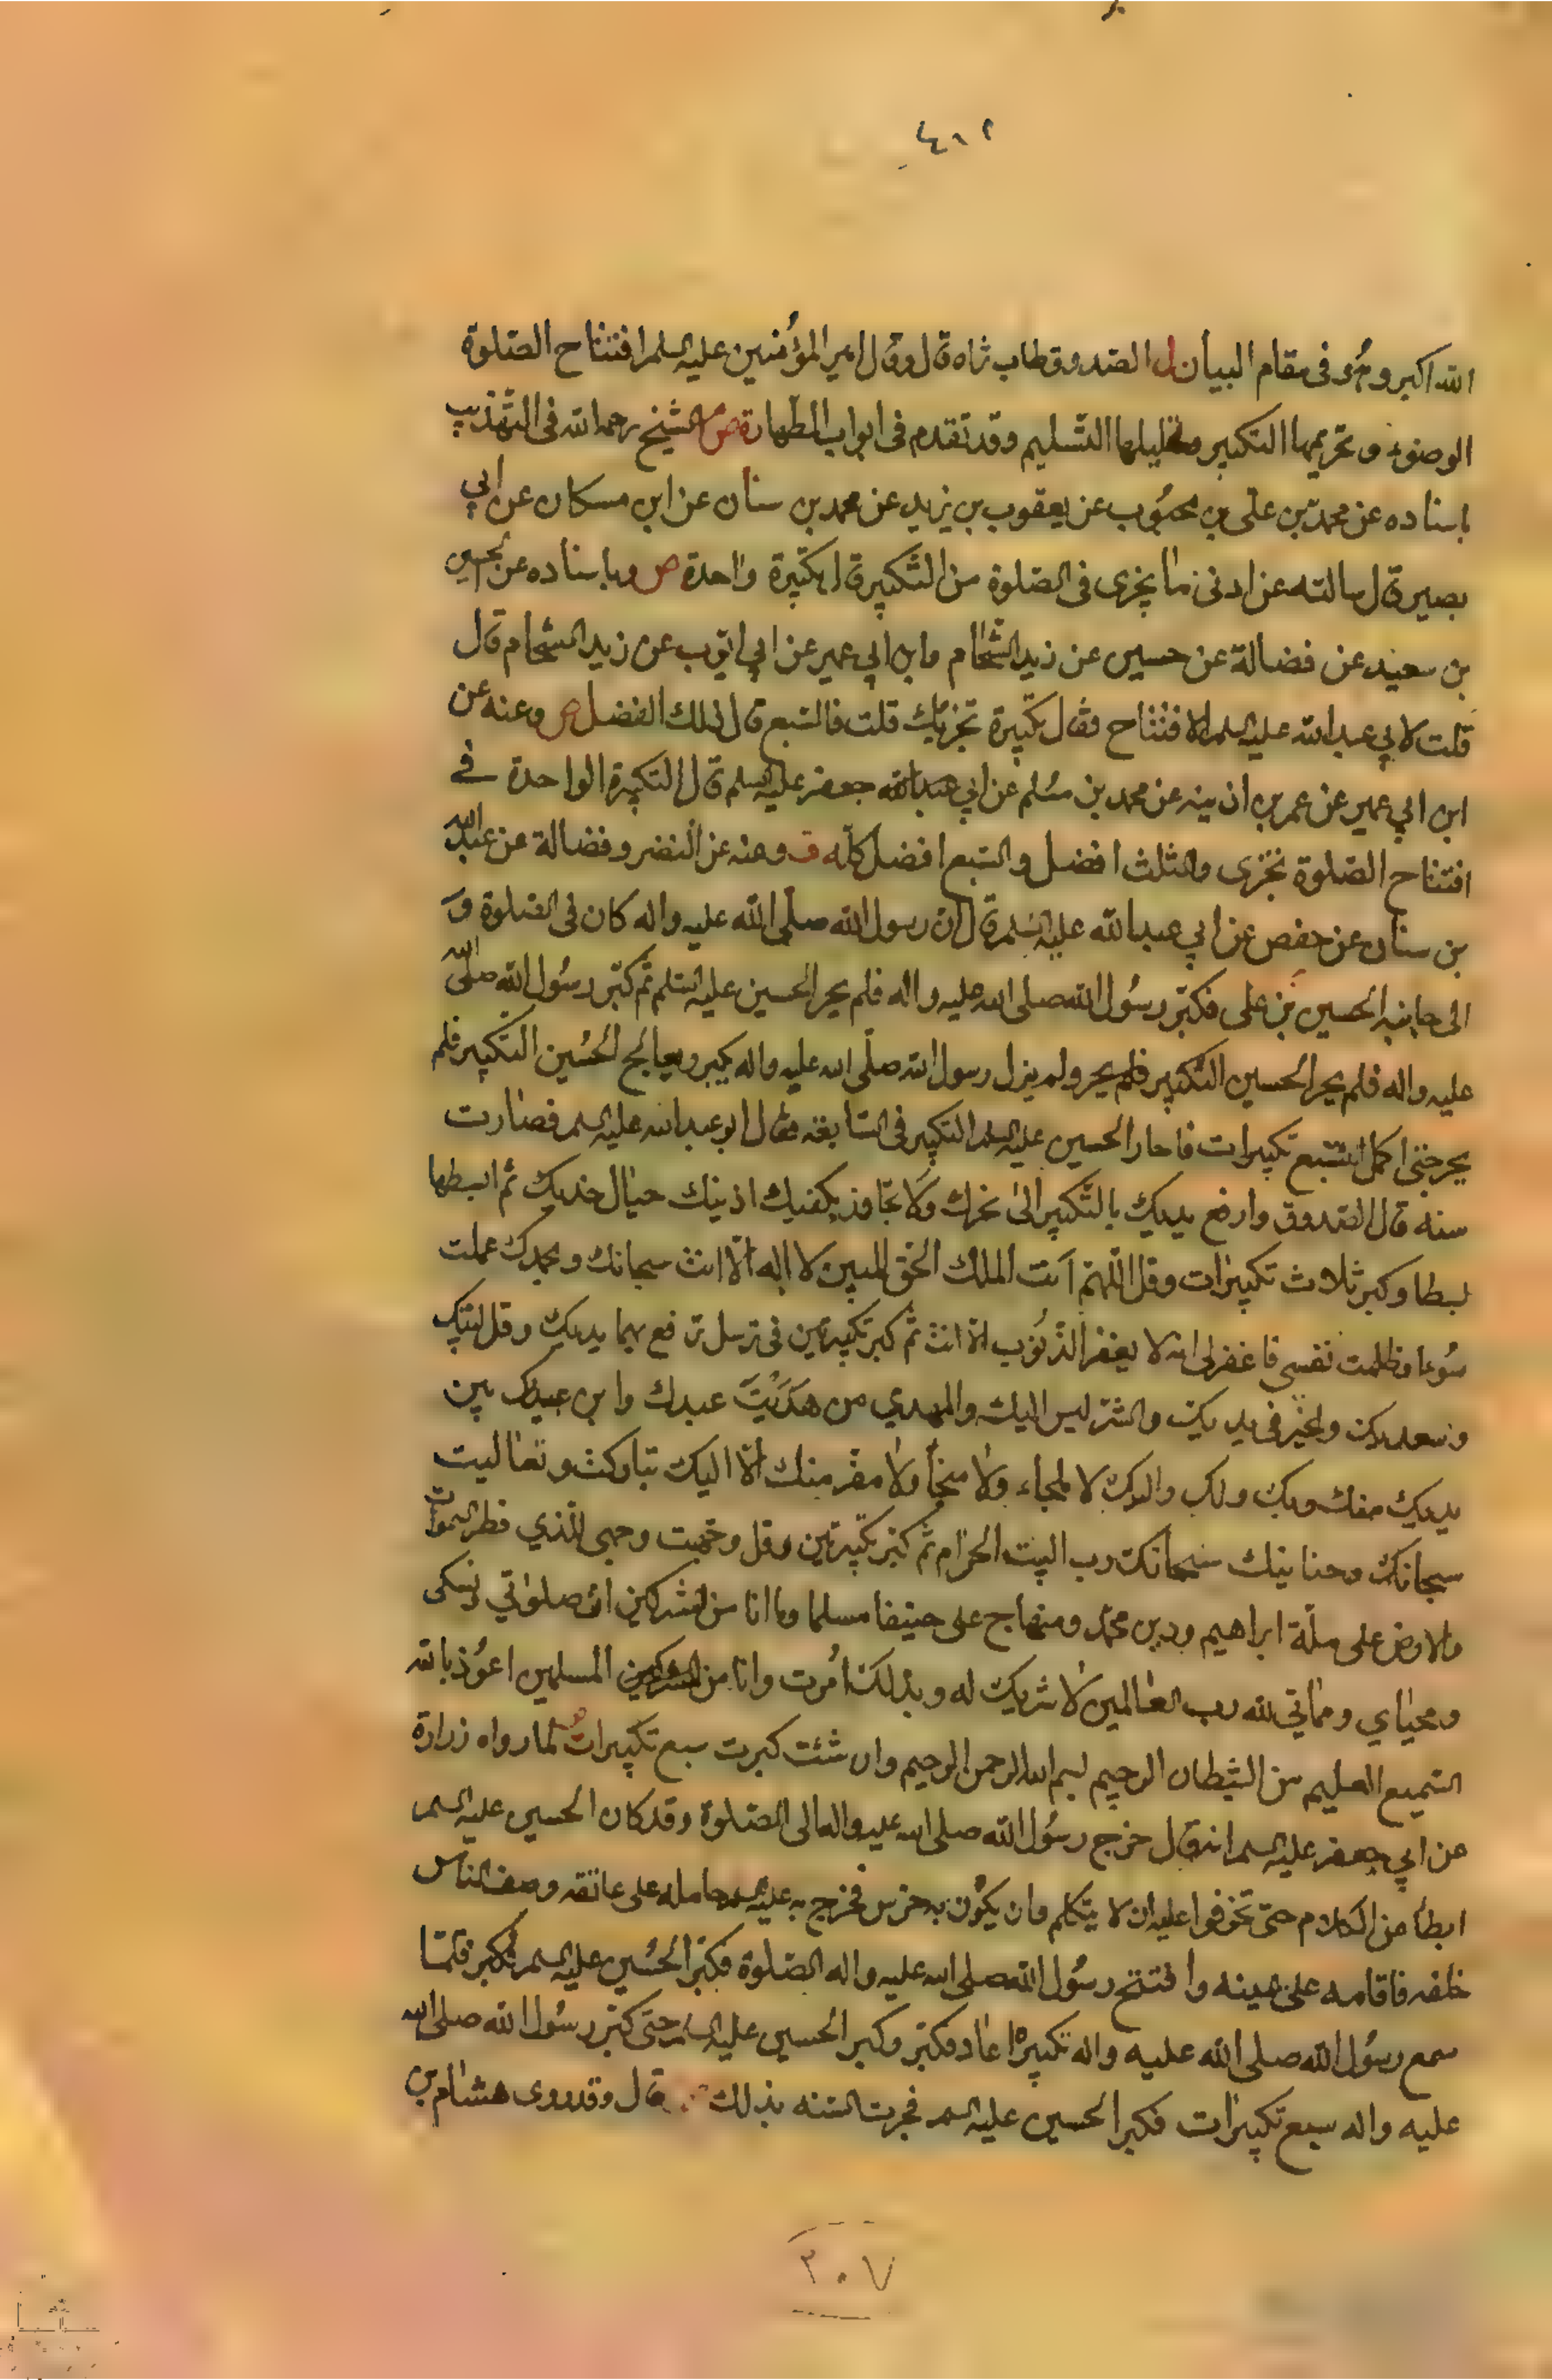 ٤١٢
الله اكبر وهُو فى مقام البيان ل الصدوق طاب ثراه قال وقال امير المؤمنين عليه السلم افتتاح الصّلوة
الوضوء و تحريمها التكبير وتحليلها التّسليم وقد تقدم فى ابواب الطّهارة ص الشيخ رحمه الله فى التهذيب
باسناده عن محمّد بن على بن محبُوب عن يعقوب بن يزيد عن محمد بن سنان عن ابن مسكان عن ابي
بصير قال سالته عن ادنى ما يجزى فى الصّلوة من التّكبير قال تكبيرة واحدة ص وباسناده عن الحسين
بن سعيد عن فضالة عن حسين عن زيد الشّحّام وابن ابي عمير عن ابي ايّوب عن زيد الشحام قال
قلت لابي عبد الله عليه السلم الافتتاح فقال تكبيرة تجزيك قلت فالسّبع قال ذلك الفضل ص وعنه عن
ابن ابي عمير عن عمر بن اذينه عن محمد بن مُسلم عن ابي جعفر عليه السلم قال التكبيرة الواحدة فے
افتتاح الصّلوة تجزى والثلث افضل والسّبع افضل كلّه وعنه عن النضر وفضالة عن عبد الله
بن سنان عن حفص عن ابي عبد الله عليه السّلم قال ان رسول الله صلّى الله عليه واله كان فى الصّلوة و
الى جانبه الحسين بن على فكبّر رسُول الله صلى الله عليه واله فلم يحر الحسين عليه السّلم ثم كبّر رسُول الله صلى الله
عليه واله فلم يحر الحسين التّكبير فلم يحر ولم يزل رسول الله صلّى الله عليه واله يكبر ويعالج الحُسين التكبير فلم
يحر حتى اكمل السّبع تكبيرات فاحار الحسين عليه السلم التكبير فى السّابعة فقال ابو عبد الله عليه السلم فصارت
سنه قال الصّدوق وارفع يديك بالتّكبير الى نحرك ولا تجاوز بكفيك اذنيك حيال خديك ثم ابسطها
بسطا وكبر ثلاث تكبيرات وقل اللّهمّ انت الملك الحقّ المبين لا اله الّا انت سبحانك وبحمدك عملت
سُوءا وظلمت نفسي فاغفر لى انه لا يغفر الذّنوُب الّا انت ثمّ كبر تكبيرتين فى ترسل ترفع بهما يديك وقل لبّيك
وسعديك والخير فى يديك والشرّ ليس اليك والمهدي من هَدَيْتَ عبدك وابن عبديك بين
يديك منك وبك ولك واليك لا ملجاء ولا منجأ ولا مفرّ منك الّا اليك تباركت وتعاليت
سبحانك وحنانيك سبحانك رب البيت الحرام ثمّ كبّر تكبيرتين وقل وجّهت وجهى للّذي فطر السموات
والارض على ملّة ابراهيم ودين محمّد ومنهاج على حنيفا مسلما وما انا من المشركين انّ صلوتي ونسكى
ومحياي ومماتي لله رب العالمين لا شريك له وبذلك اُمرت وانا من المسلمين اعوُذ بالله
السّميع العليم من الشيطان الرجيم بسم الله الرحمن الرحيم وان شئت كبرت سبع تكبيرات لما رواه زرارة
عن ابي جعفر عليه السلم انه قال خرج رسُول الله صلى الله عليه واله الى الصّلوة وقد كان الحسين عليه السلم
ابطأ عن الكلام حتى تخوفوا عليه ان لا يتكلم وان يكوُن به خرس فخرج به عليه السلم حامله على عاتقه وصف الناس
خلفه فاقامه على يمينه وافتتح رسُول الله صلى الله عليه واله الصّلوة فكبّر الحُسين عليه السلم فلمّا
سمع رسُول الله صلى الله عليه واله تكبيره عاد فكبّر وكبر الحسين عليه السلم حتى كبّر رسُول الله صلى الله
عليه واله سبع تكبيرات فكبر الحسين عليه السلم فجرت السّنه بذلك قال وقد روى هشام بن
٣٠٧